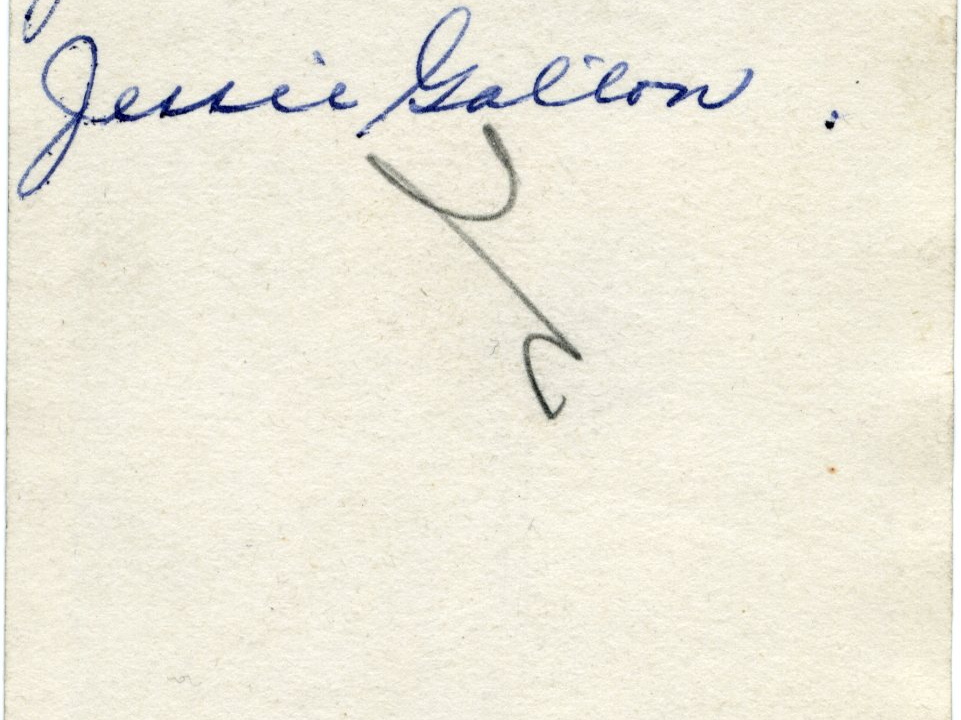 Jessie Gallon.